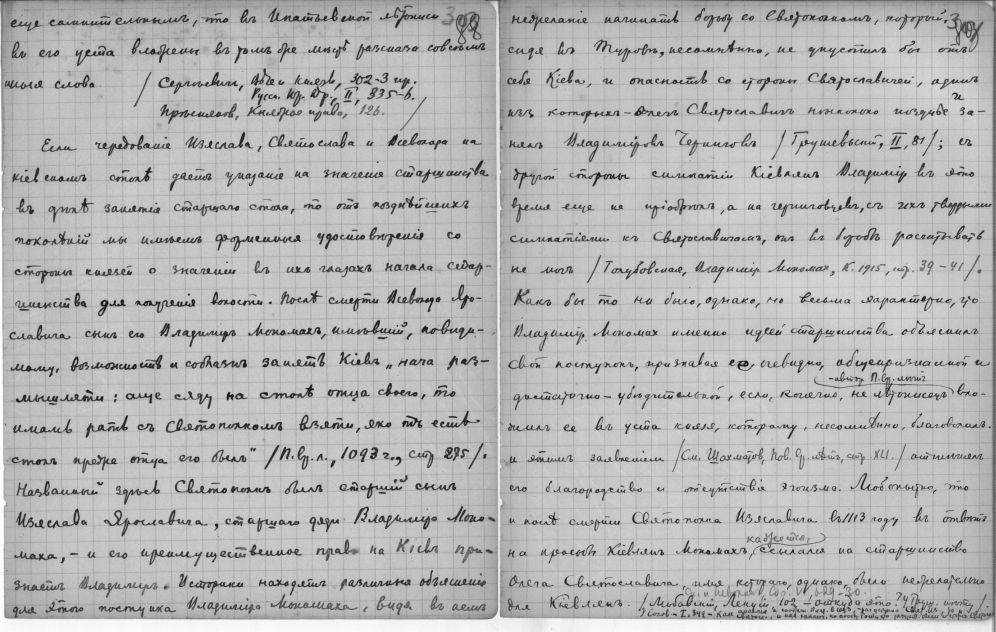 еще сомнительнымъ, что въ Ипатьевской лѣтописи
въ его уста вложены въ томъ же мѣстѣ разсказа совсѣмъ
иныя слова / Сергѣевич, Вѣче и князь, 302-3 пр.
Русск. Юр. Др., II, 335-6.
Прѣсняков, Княжое право, 126. /
Если чередованіе Изяслава, Святослава и Всеволода на
кіевскомъ столѣ даетъ указаніе на значеніе старшинства
въ дѣлѣ занятія старшаго стола, то отъ позднѣйшихъ
поколѣній мы имѣемъ форменныя удостовѣренія со
стороны князей о значеніи въ ихъ глазахъ начала стар-
шинства для полученія волости. Послѣ смерти Всеволода Яро-
славича сынъ его Владиміръ Мономахъ, имѣвшій, повиди-
мому, возможность и соблазнъ занять Кіевъ, „нача раз-
мышляти: аще сяду на столѣ отца своего, то
имамъ рать съ Святополкомъ взяти, яко тъ есть
столъ преже отца его былъ" /П. вр. л., 1093 г., стр 295/.
Названный здѣсь Святополкъ былъ старшій сынъ
Изяслава Ярославича, старшаго дяди Владиміра Моно-
маха, - и его преимущественное право на Кіевъ при-
знаетъ Владиміръ. Историки находятъ различныя объясненія
для этого поступка Владиміра Мономаха, видя въ немъ
нежеланіе начинать борьбу со Святополкомъ, который,
сидя въ Туровѣ, несомнѣнно, не упустилъ бы отъ
себя Кіева, и опасность со стороны Святославичей, одинъ
изъ которыхъ - Олегъ Святославичъ нѣсколько позднѣе и за-
нялъ Владиміровъ Черниговъ /Грушевськiй, II, 81/; съ
другой стороны симпатій Кіевлянъ Владиміръ въ это
время еще не пріобрѣлъ, а на черниговцевъ, съ ихъ твердыми
симпатіями къ Святославичамъ, онъ въ борьбѣ расчитывать
не могъ /Голубовская, Владимір Мономах, К. 1915, стр. 39-41/.
Какъ бы то ни было, однако, но весьма характерно, что
Владимір Мономах именно идеей старшинства объяснилъ
свой поступокъ, признавая ее, очевидно, общепризнанной и
достаточно-убѣдительной, если, конечно, не лѣтописецъ - авторъ П. вр. лѣтъ вло-
жилъ ее въ уста князя, которому, несомнѣнно, благоволилъ
и этимъ заявленіем /См. Шахматов, Пов. вр. лѣтъ, стр. XLI./ оттѣнилъ
его благородство и отсутствіе эгоизма. Любопытно, что
и послѣ смерти Святополка Изяславича въ 1113 году въ отвѣтъ
на просьбы Кіевлянъ Мономахъ, кажется, ссылался на старшинство
Олега Святославича, имя котораго, однако, было нежелательно
для Кіевлянъ. /Любавскій, Лекціи 102 - откуда это?